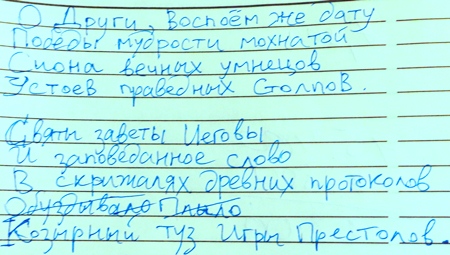 О Други, Воспоём же дату
Победы мудрости мохнатой
Сиона вечных умнецов
Устоев праведных Столпов.
Святы заветы Иеговы
И заповеданное слово
В скрижалях древних протоколов
Обуздывало Плыло
Козырный туз Игры Престолов.